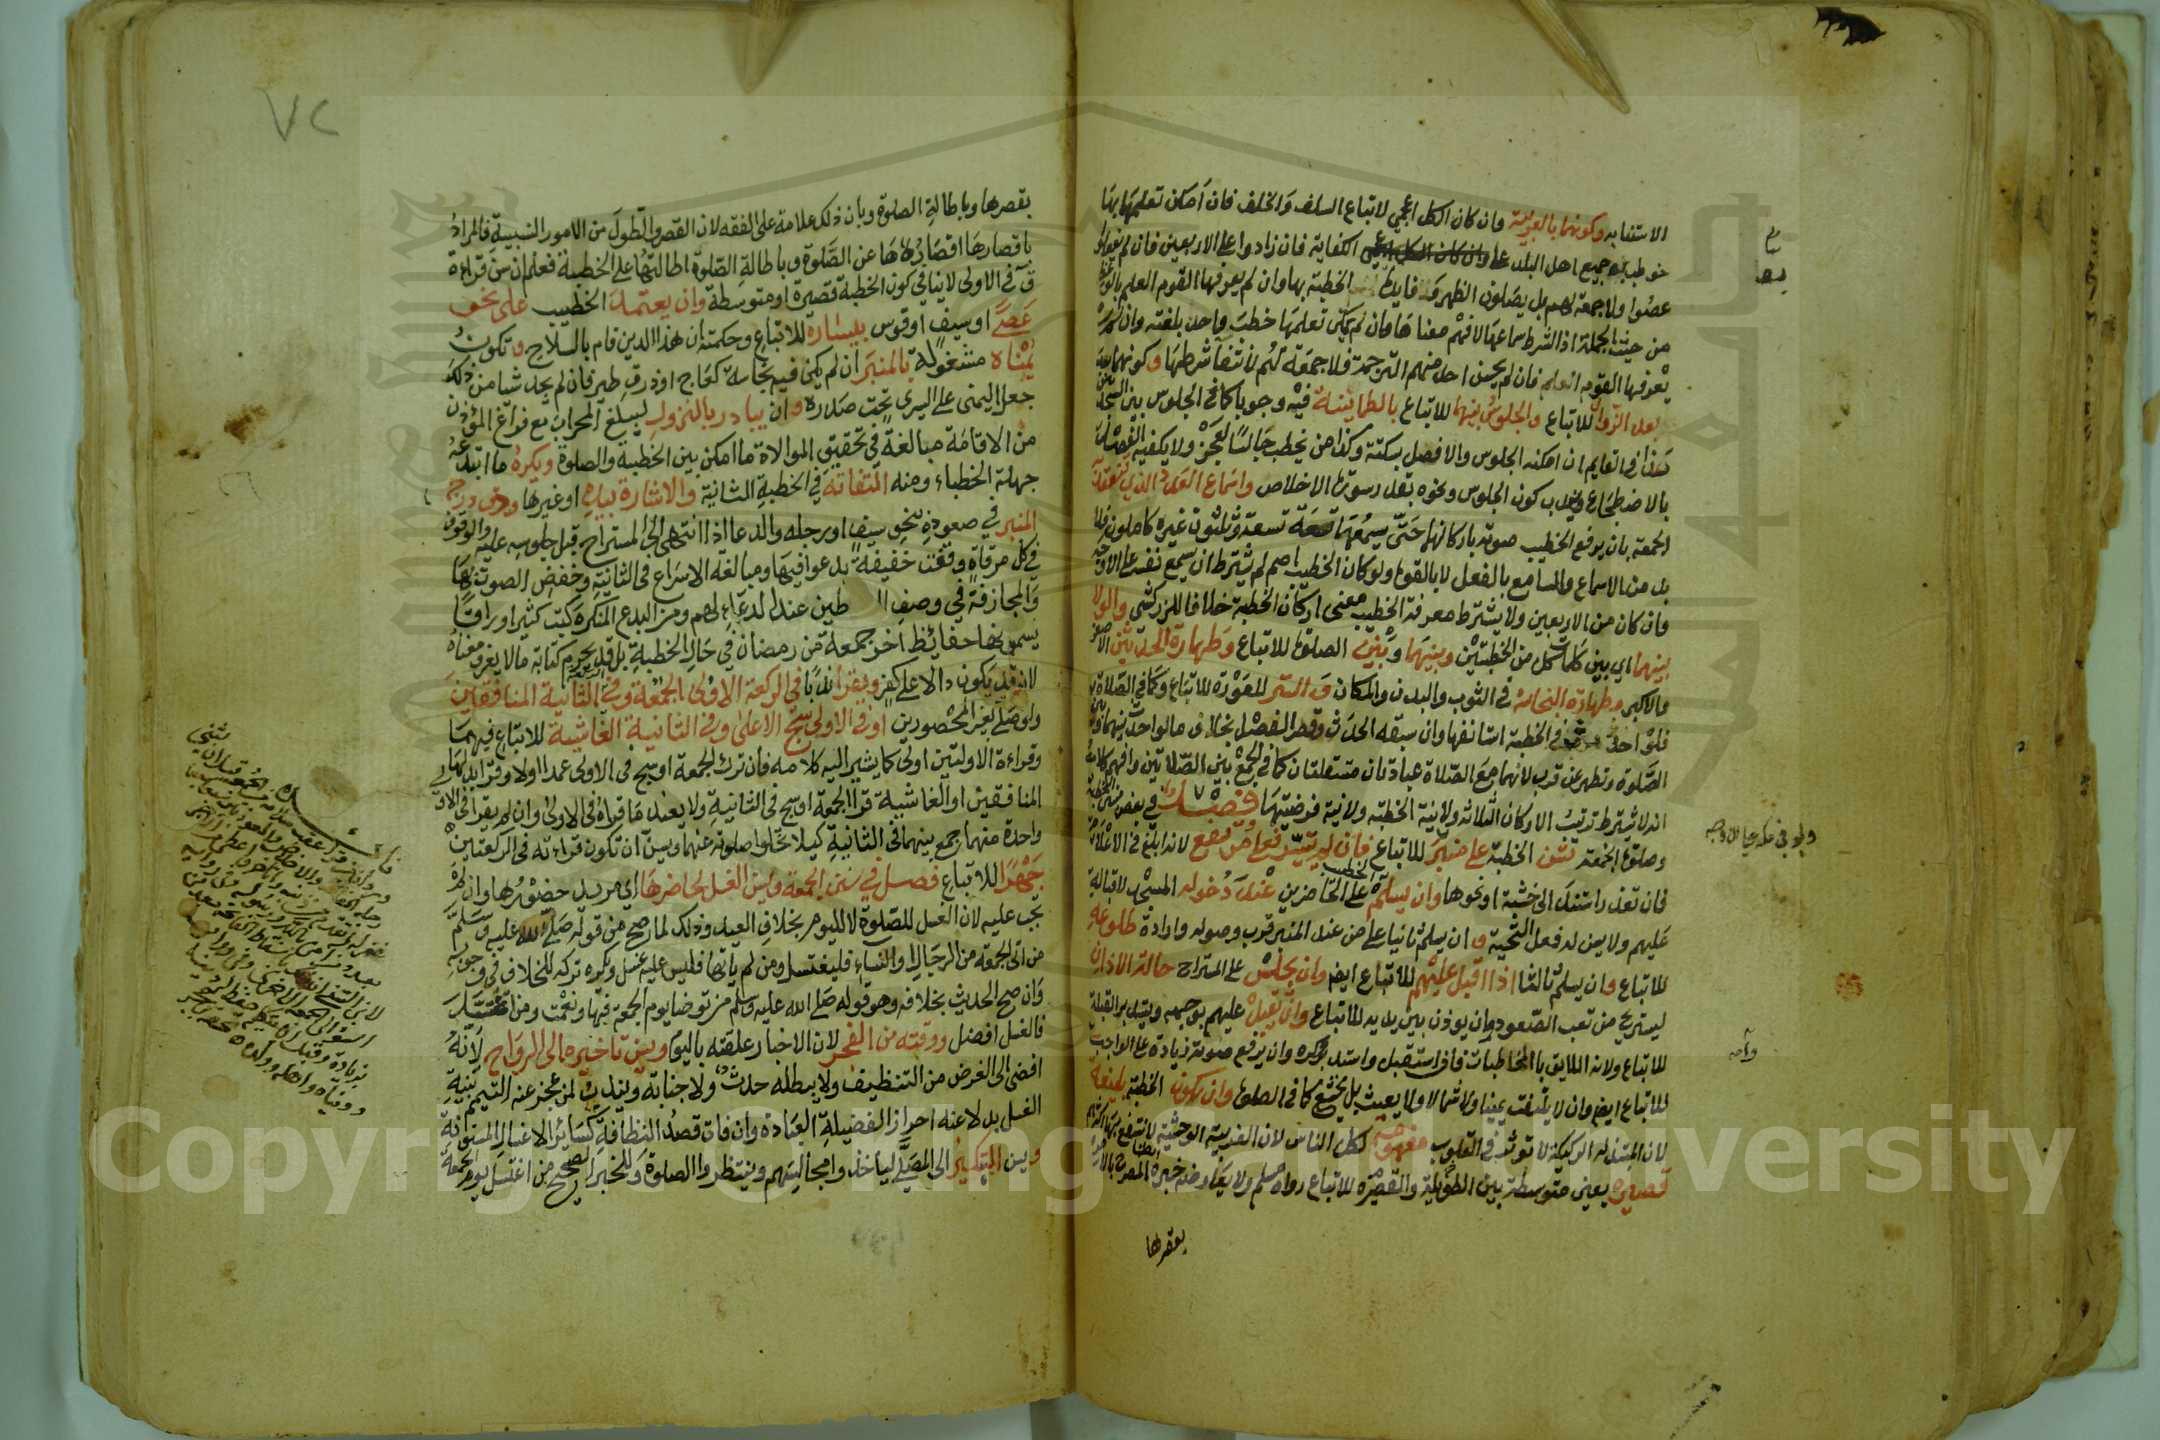 الاستغنابه وكونهما بالعربية وان كان الكل اعجمي لاتباع السلف والخلف فان امكن تعلمها بها
خوطب به جميع اهل البلد على الكفاية فان زادوا على الاربعين فان لم يفعلوا
عصوا ولا جمعة لهم بل يصلون الظهر وفايدة الخطبة بها وان لم يعرفها القوم العلم بالوعظ
من حيث الجملة اذ الشرط سماعها لا فهم معناها فان لم يمكن تعلمها خطب واحد بلغته وان لم
يعرفها القوم فان لم يحسن احد منهم الترجمة فلا جمعة لهم لانتفا شرطها وكونهما
بعد الزوال للاتباع والجلوس بينهما للاتباع بالطمانينة فيه وجوبا كما في الجلوس بين السجدتين
هذا في القايم ان امكنه الجلوس والافصل بسكتة وكذا من يخطب جالسا لعجز ولا يكفيه الفصل
بالاضطجاع ويندب كون الجلوس ونحوه بقدر سورة الاخلاص واسماع العدد الذي تنعقد به
الجمعة بان يرفع الخطيب صوته باركانهما حتى يسمعها تسعة وثلثون غيره كاملون فلا
بد من الاسماع والسامع بالفعل لا بالقوة ولو كان الخطيب اصم لم يشترط ان يسمع نفسه على الاوجه
وان كان من الاربعين ولا يشترط معرفة الخطيب معنى اركان الخطبة خلافا للزركشي والولا
بينهما اي بين كلمات كل من الخطبتين وبينهما وبين الصلوة للاتباع وطهارة الحدثين الاصغر
والاكبر وطهارة النجاسة في الثوب والبدن والمكان والستر للعورة للاتباع وكما في الصلاة
فلو احدث في الخطبة استانفها وان سبقه الحدث وقصر الفصل بخلاف ما لو احدث بينهما وبين
الصلوة وتطهر عن قرب لانهما مع الصلاة عبادتان مستقلتان كما في الجمع بين الصلاتين وافهم كلامه
انه لا يشترط ترتيب الاركان الثلاثة ولا نية الخطبة ولا نية فرضيتها فصل في بعض سنن الخطبة
وصلوة الجمعة تسن الخطبة على منبر للاتباع فان لم يتيسر فعلى مرتفع لانه ابلغ في الاعلام
فان تعذر استند الى خشبة او نحوها وان يسلم الخطيب على الحاضرين عند دخوله المسجد لاقباله
عليهم ولا يسن له فعل التحية وان يسلم ثانيا على من عند المنبر قرب وصوله وارادة طلوعه
للاتباع وان يسلم ثالثا اذا اقبل عليهم للاتباع ايضا وان يجلس على المستراح حالة الاذان
ليستريح من تعب الصعود وان يوذن بين يديه للاتباع وان يقبل عليهم بوجهه ويستدبر القبلة
للاتباع ولانه اللايق بالمخاطبات فان استقبل واستدبروا كره وان يرفع صوته زيادة على الواجب
للاتباع ايضا وان لا يلتفت يمينا ولا شمالا ولا يعبث بل يخشع كما في الصلوة وان تكون الخطبة بليغة
لان المبتذلة الركيكة لا توثر في القلوب مفهومة لكل الناس لان الغريبة الوحشية لا ينتفع بها اكثرهم
قصيرة يعني متوسطة بين الطويلة والقصيرة للاتباع رواه مسلم ولا يعارضه خبره المصرح بالامر
بقصرها
بقصرها وباطالة الصلوة وبان ذلك علامة على الفقه لان القصر والطول من الامور النسبية فالمراد
باقصارها اقصارها عن الصلوة وباطالة الصلوة اطالتها على الخطبة فعلم ان سن قراءة
ق في الاولى لا ينافي كون الخطبة قصيرة او متوسطة وان يعتمد الخطيب على نحو
عصى او سيف او قوس بيساره للاتباع وحكمته ان هذا الدين قام بالسلاح وتكون
يمناه مشغولة بالمنبر ان لم يكن فيه نجاسة كعاج او ذرق طير فان لم يجد شيا من ذلك
جعل اليمنى على اليسرى تحت صدره وان يبادر بالنزول ليبلغ المحراب مع فراغ المؤذن
من الاقامة مبالغة في تحقيق الموالاة ما امكن بين الخطبة والصلوة ويكره ما ابتدعه
جهلة الخطباء ومنه التفاته في الخطبة الثانية والاشارة بيده او غيرها ودق درج
المنبر في صعوده بنحو سيف او رجله والدعا اذا انتهى الى المستراح قبل جلوسه عليه والوقوف
في كل مرقاة وقفة خفيفة يدعو فيها ومبالغة الاسراع في الثانية وخفض الصوت بها
والمجازفة في وصف السلاطين عند الدعاء لهم ومن البدع المنكرة كتب كثير اوراقا
يسمونها حفائظ اخر جمعة من رمضان في حال الخطبة بل قد يحرم كتابة ما لا يعرف معناه
لانه قد يكون دالا على كفر ويقرا ندبا في الركعة الاولى الجمعة وفي الثانية المنافقين
ولو صلى بغير المحصورين او في الاولى سبح الاعلى وفي الثانية الغاشية للاتباع فيهما
وقراءة الاولتين اولى كما يشير اليه كلامه فان ترك الجمعة او سبح في الاولى عمدا او لا وقرا بدلها
المنافقين او الغاشية قرا الجمعة او سبح في الثانية ولا يعيد ما قراه في الاولى وان لم يقرا في الاولى
واحدة منهما جمع بينهما في الثانية كيلا تخلوا صلوته عنهما ويسن ان تكون قراءته في الركعتين
جهرا للاتباع فصل في سنن الجمعة وسن الغسل لحاضرها اي مريد حضورها وان لم
يجب عليه لان الغسل للصلوة لا لليوم بخلاف العيد وذلك لما صح من قوله صلى الله عليه وسلم
من اتى الجمعة من الرجال او النساء فليغتسل ومن لم ياتها فليس عليه غسل ويكره تركه للخلاف في وجوبه
وان صح الحديث بخلافه وهو قوله صلى الله عليه وسلم من توضا يوم الجمعة فبها ونعمت ومن اغتسل
فالغسل افضل ووقته من الفجر لان الاخبار علقته باليوم ويسن تاخيره الى الرواح لانه
افضى الى الغرض من التنظيف ولا يبطله حدث ولا جنابة ويندب لمن عجز عنه التيمم بنية
الغسل بدلا عنه احرازا لفضيلة العبادة وان فات قصد النظافة كسائر الاغسال المسنونة
ويسن التبكير الى المصلى لياخذوا مجالسهم وينتظروا الصلوة وللخبر الصحيح من اغتسل يوم الجمعة